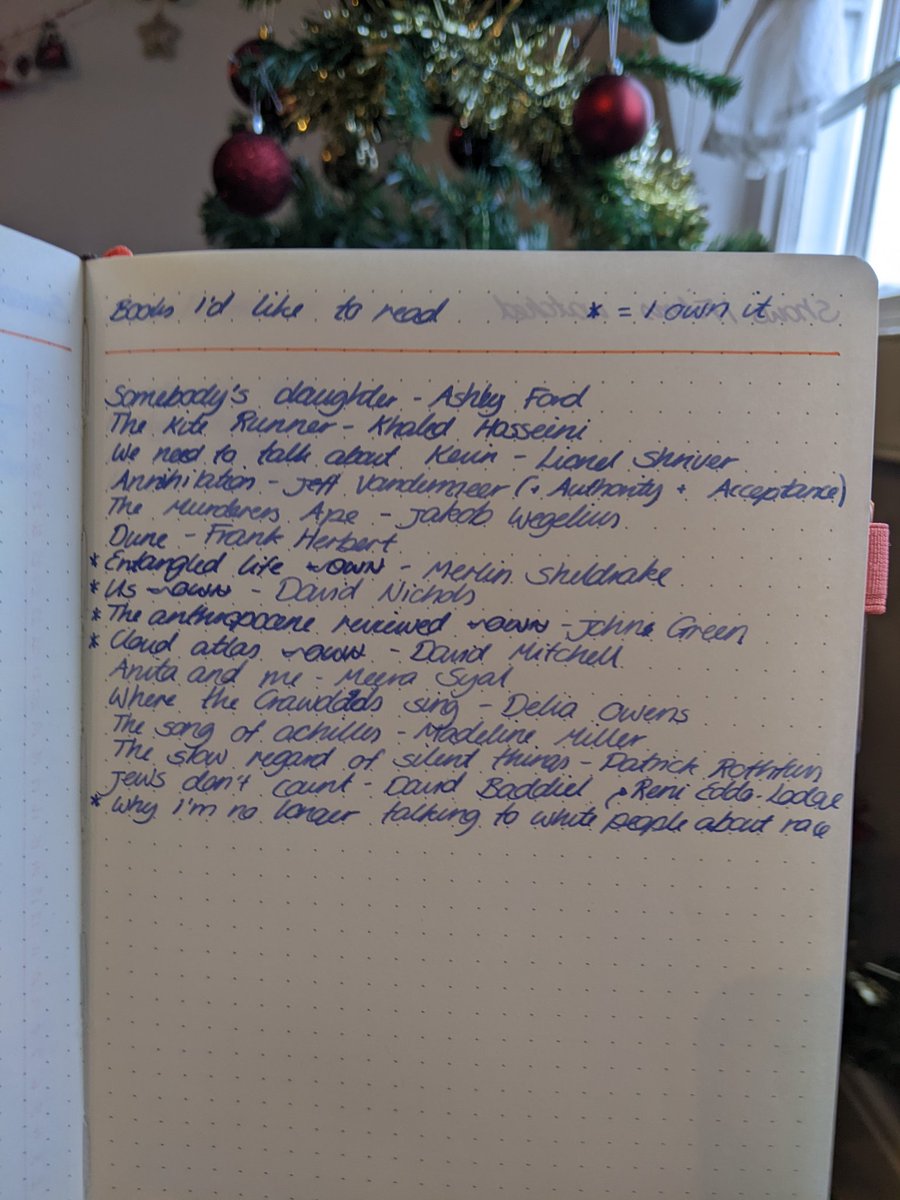 Books i'd like to read * = I own it
Somebody's daughter - Ashley Ford
The Kite Runner - Khaled Hosseini
We need to talk about Kevin - Lionel Shriver
Annihilation - Jeff Vandermeer (+ Authority + Acceptance)
The Murderers Ape - Jakob Wegelius
Dune - Frank Herbert
* Entangled life - own - Merlin Sheldrake
* Us - own - David Nichols
* The anthropocene reviewed - own - John Green
* Cloud atlas - own - David Mitchell
Anita and me - Meera Syal
Where the Crawdads sing - Delia Owens
The song of achilles - Madeline Miller
The slow regard of silent things - Patrick Rothfuss
Jews don't count - David Baddiel Reni Eddo-Lodge
* Why i'm no longer talking to white people about race